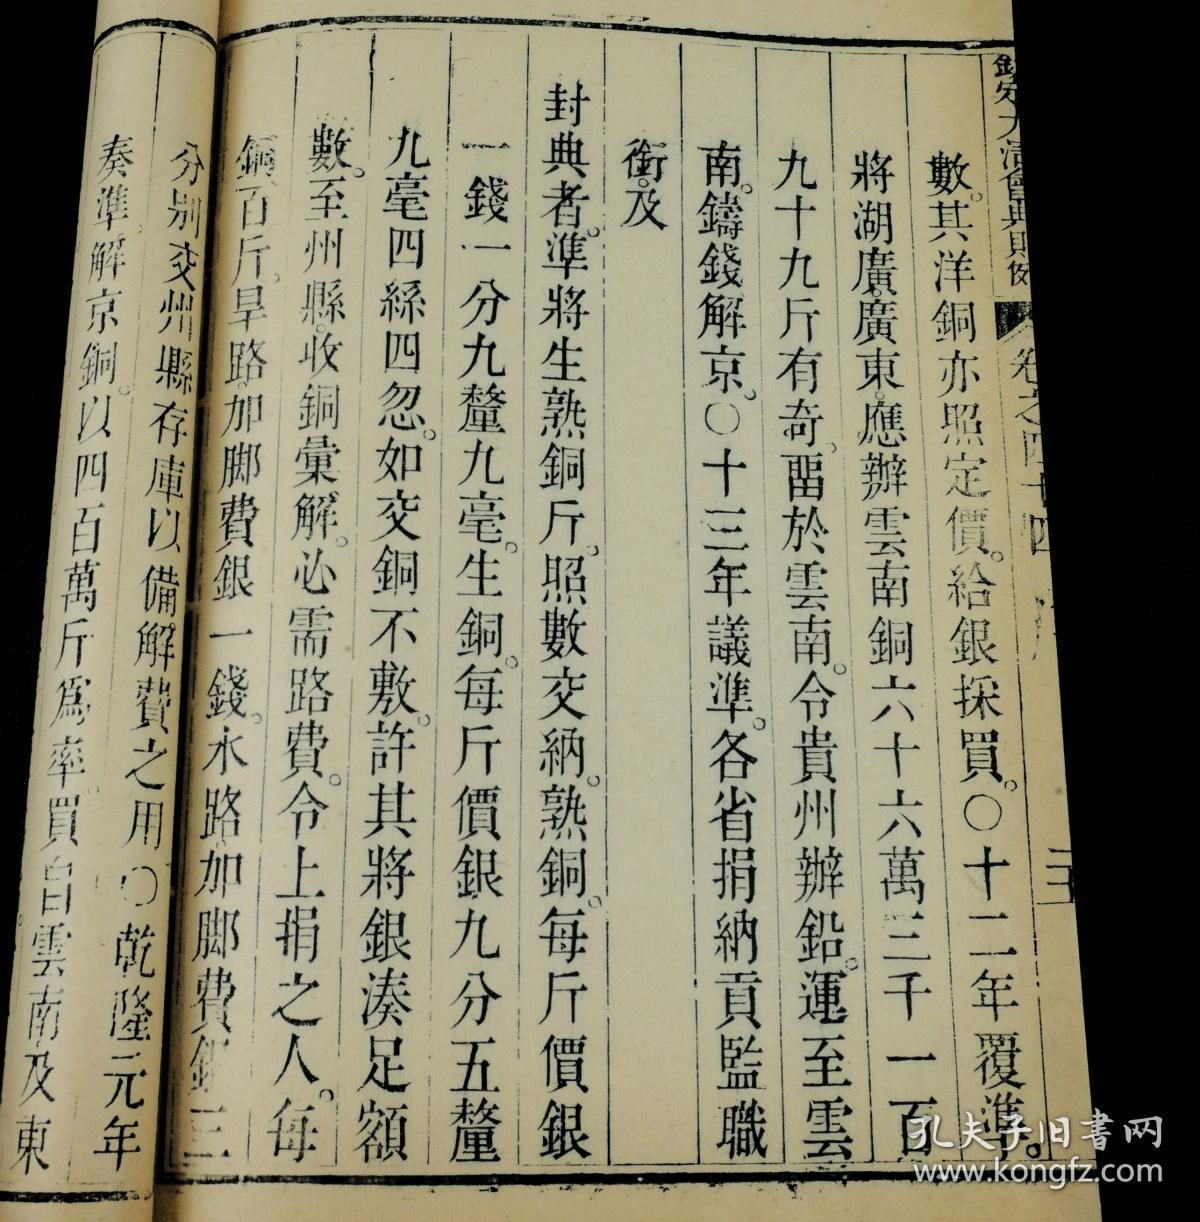 欽定大清會典則例 卷之四十四
數。其洋銅亦照定價。給銀採買。○十二年覆準。
將湖廣。廣東。應辦雲南銅六十六萬三千一百
九十九斤有奇。畱於雲南。令貴州辦鉛。運至雲
南。鑄錢解京。○十三年議準。各省捐納貢監職
銜。及
封典者。準將生熟銅斤。照數交納。熟銅。每斤價銀
一錢一分九釐九毫。生銅。每斤價銀九分五釐
九毫四絲四忽。如交銅不敷。許其將銀湊足額
數。至州縣。收銅彙解。必需路費。令上捐之人。每
銅百斤。旱路。加腳費銀一錢。水路。加腳費銀三
分。別交州縣存庫以備解費之用○乾隆元年
奏準。解京銅。以四百萬斤爲率。買自雲南及東
孔夫子旧书网
www.kongfz.com